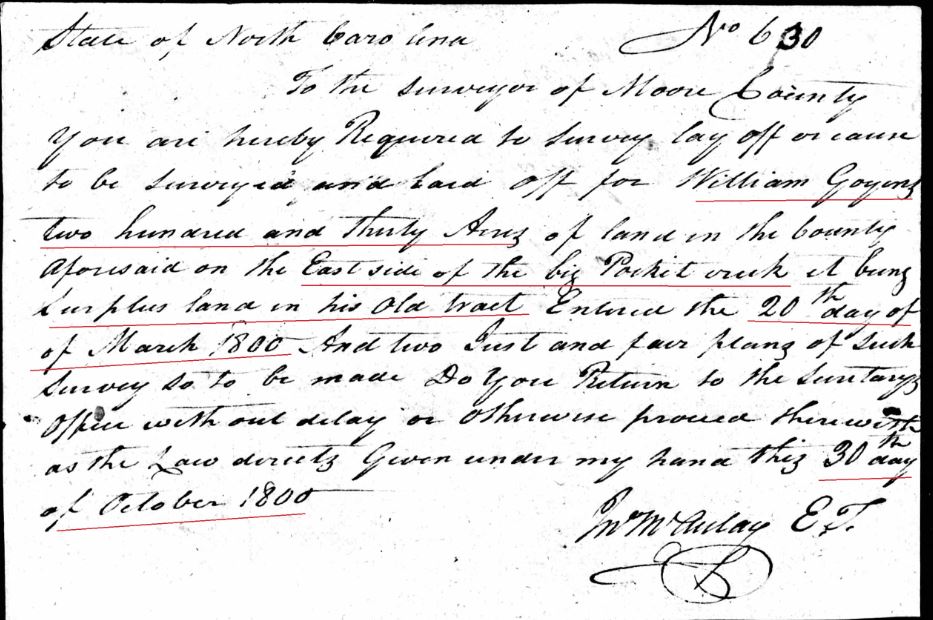 State of North Carolina No 630
To the surveyor of Moore County
You are hereby Required to survey lay off or cause
to be surveyed and laid off for William Goyens
two hundred and thirty Acres of land in the County
aforesaid on the East side of the big Pocket creek it being
Surplus land in his Old tract Entered the 20th day of
of March 1800 And two Just and fair plans of such
Survey so to be made Do You Return to the
Office without delay or otherwise proceed therewith
as the Law directs Given under my hand this 30th day
of October 1800
Jno McAulay E T.